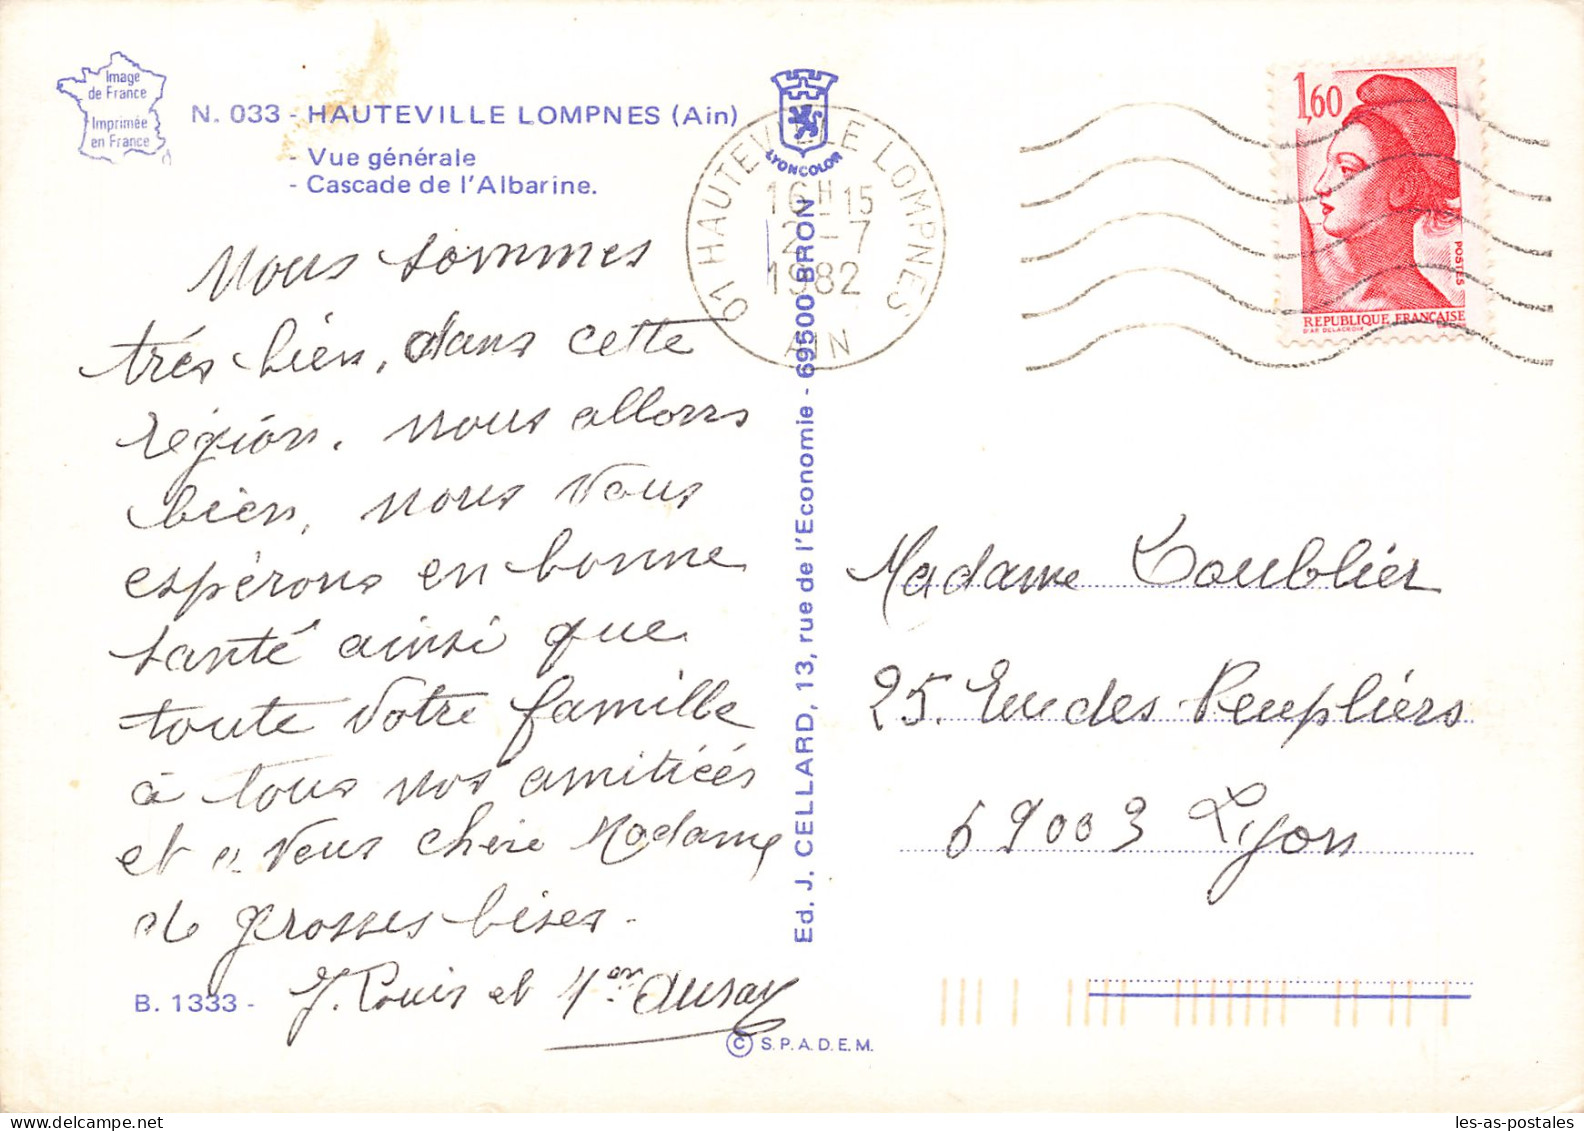 Image
de France
Imprimée
en France
N. 033 - HAUTEVILLE LOMPNES (Ain)
- Vue générale
- Cascade de l'Albarine.
Nous sommes
très bien, dans cette
région. nous allons
bien, nous vous
espérons en bonne
santé ainsi que
toute votre famille
à tous nos amitiés
et à vous chère Madame
de grosses bises -
J. Louis et
B. 1333 -
LYONCOLOR
Ed. J. CELLARD, 13, rue de l'Economie - 69500 BRON
© S.P.A.D.E.M.
01 HAUTEVILLE LOMPNES
16H15
12-7
1982
AIN
1,60
POSTES
REPUBLIQUE FRANÇAISE
D'AP. DELACROIX
Madame Loublier
25. Rue des Peupliers
69003 Lyon
les-as-postales